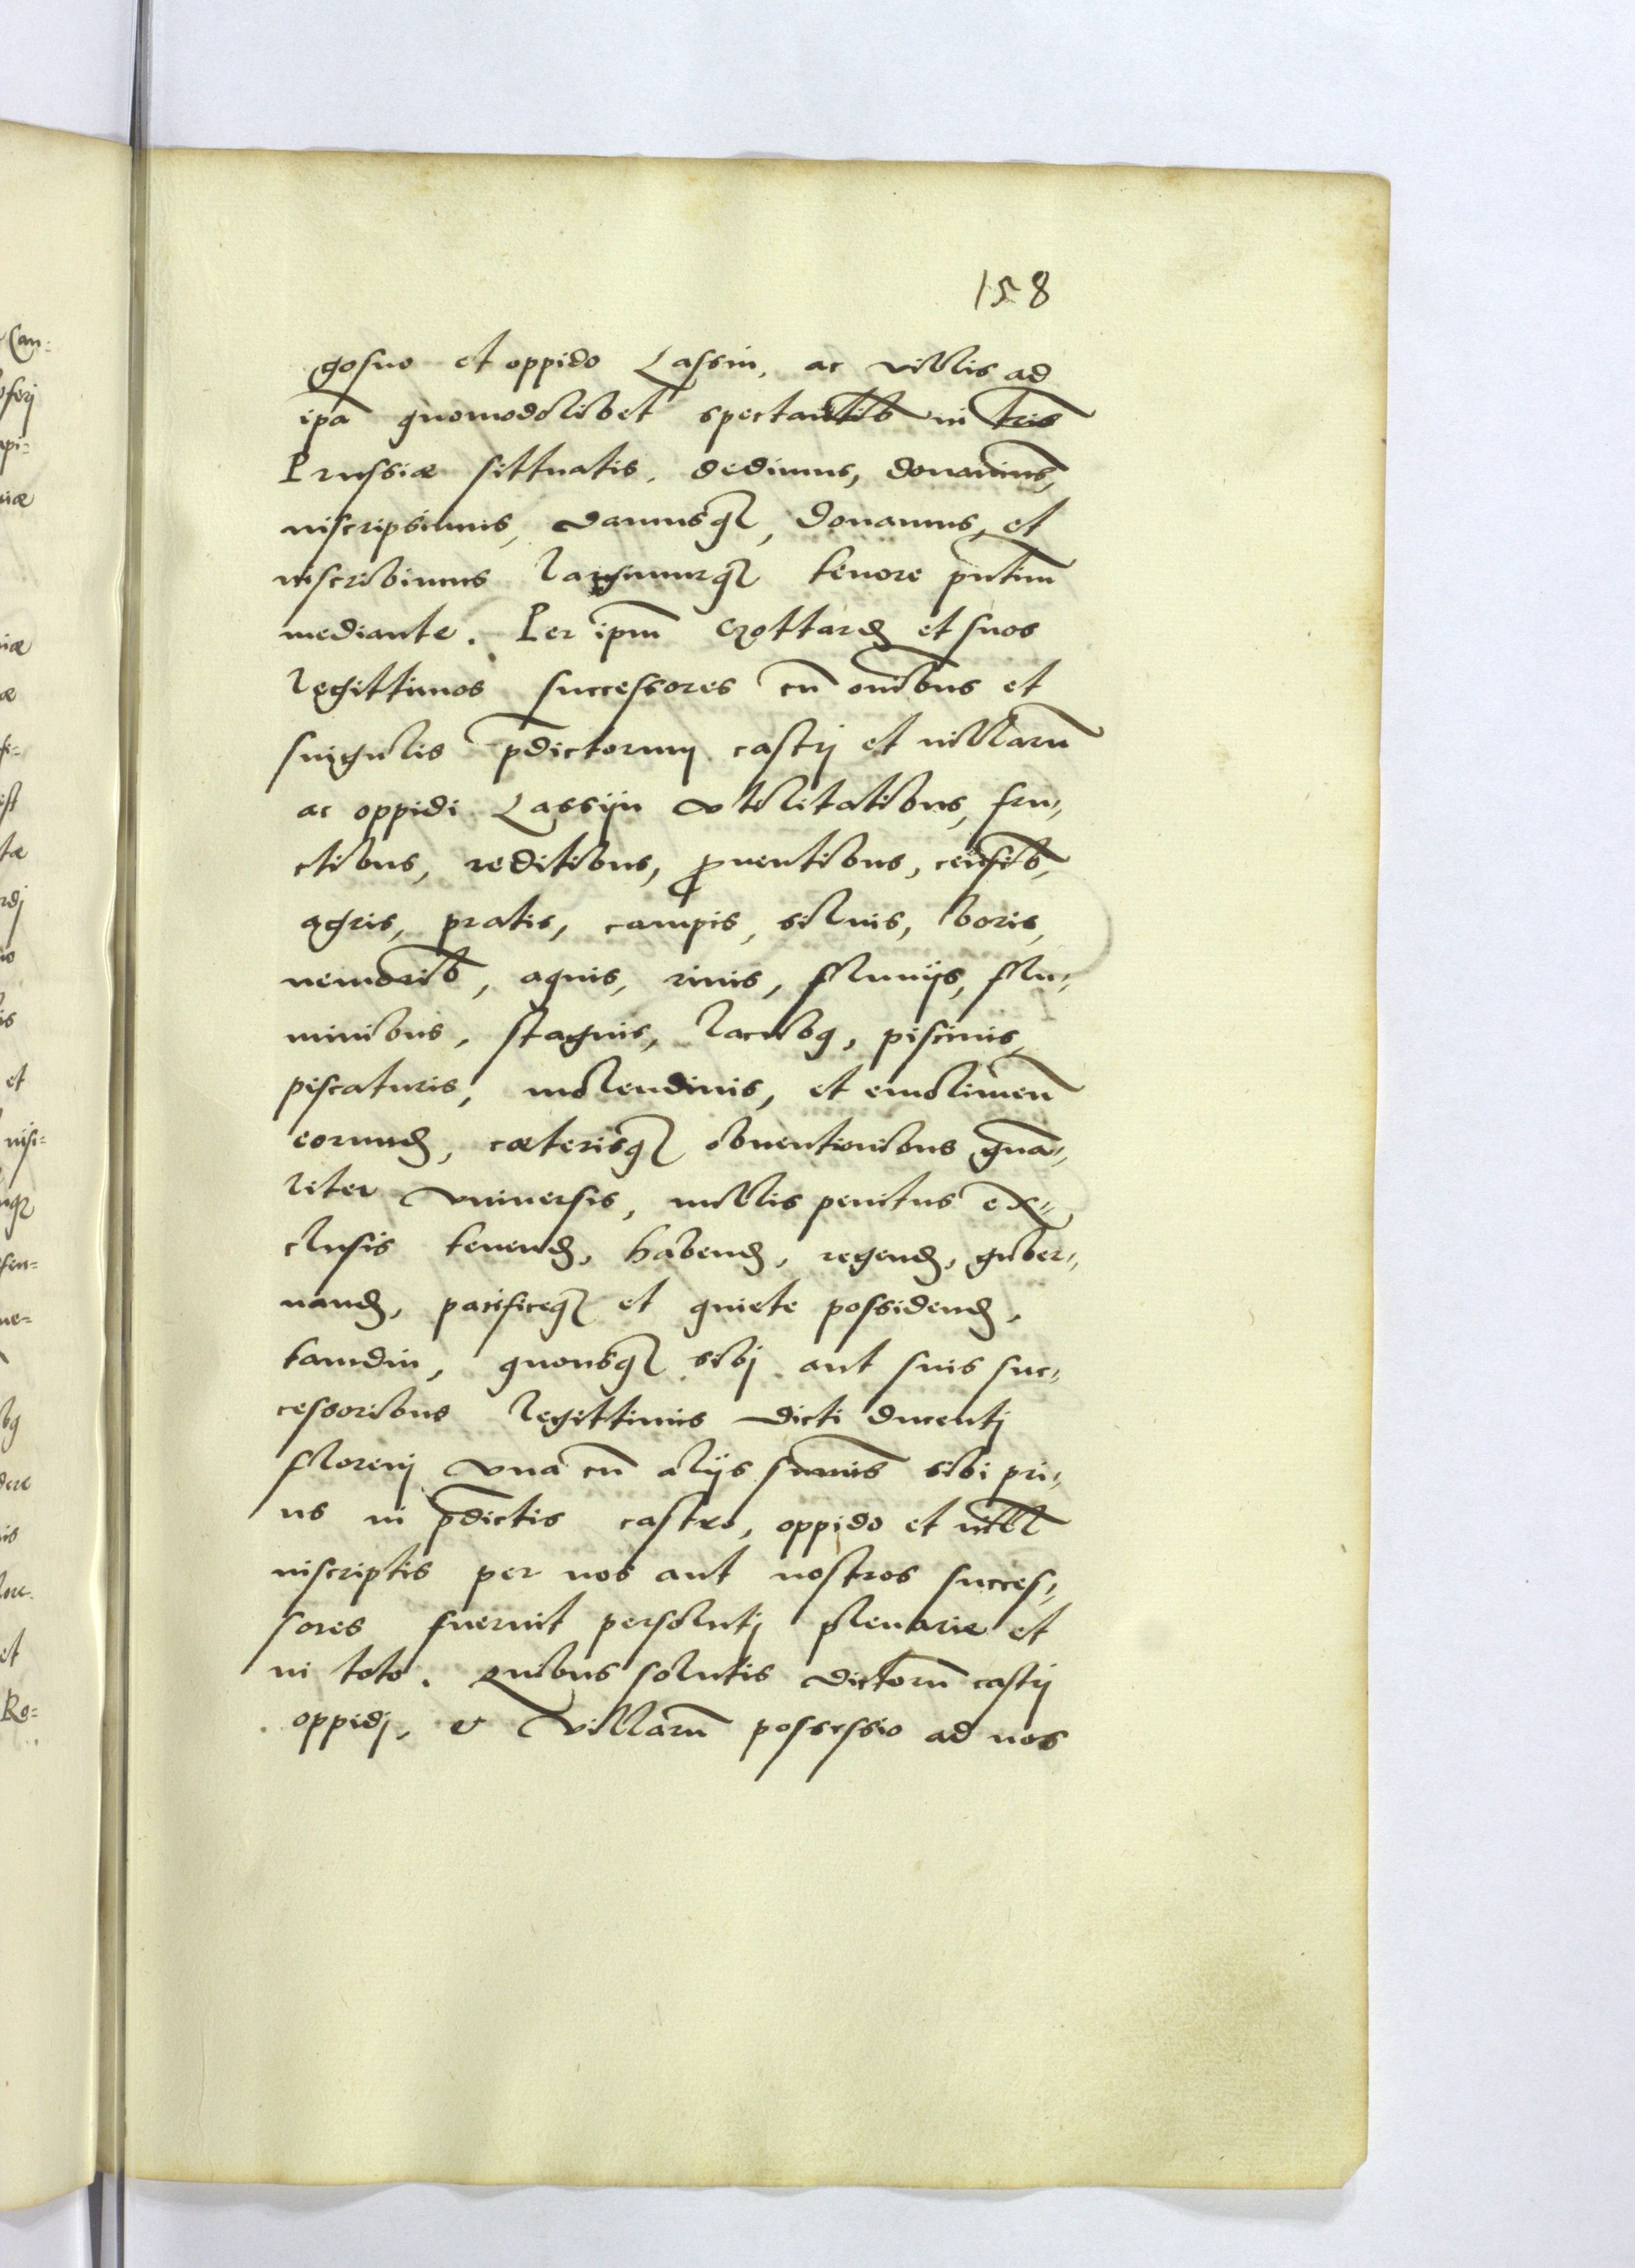 158
gosno et oppido Lassin, ac villis ad
ip̄a quomodolibet spectantib in tr̄is
Prussiæ sittuatis, dedimus, donauimus,
inscripsimus, damusq́, donamus, et
inscribimus largimurq́ tenore pn̄tium
mediante. Per ip̄m Gottard et suos
legittimos successores cū om̄ibus et
singulis p̄dictorum castrj et villarū
ac oppidi Lassijn vtilitatibus, fru„
ctibus, reditibus, ꝓuentibus, censib,
agris, pratis, campis, siluis, boris,
nemorib, aquis, riuis, fluuijs, flu„
minibus, stagnis, lacubq, piscinis,
piscaturis, molendinis, et emolimen̄
eorund, cæterisq́ obuentionibus gn̄a„
liter vniuersis, nullis penitus ex„
clusis tenend, habend, regend, guber„
nand, pacificeq́ et quiete possidend,
tamdiu, quousq́ sibj aut suis suc„
cessoribus legittimis dicti ducentj
florenj vna cū alijs summis sibi pri„
us in p̄dictis castro, oppido et vill
inscriptis per nos aut nostros succes„
sores fuerint persolutj plenarie et
in toto. Quibus solutis dictorū castrj
oppidj, et villarū possessio ad nos
Can:
et
Ro: